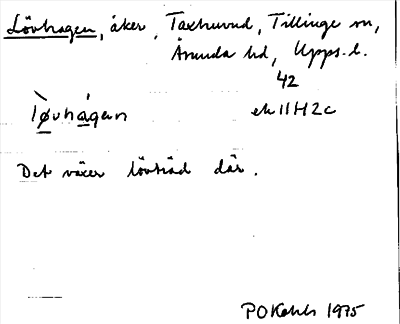 Lövhagen, åker, Taxhuvud, Tillinge sn,
Åsunda hd, Upps. l.
42
lø̀vhågan ek 11H2c
Det växer lövträd där.
1975